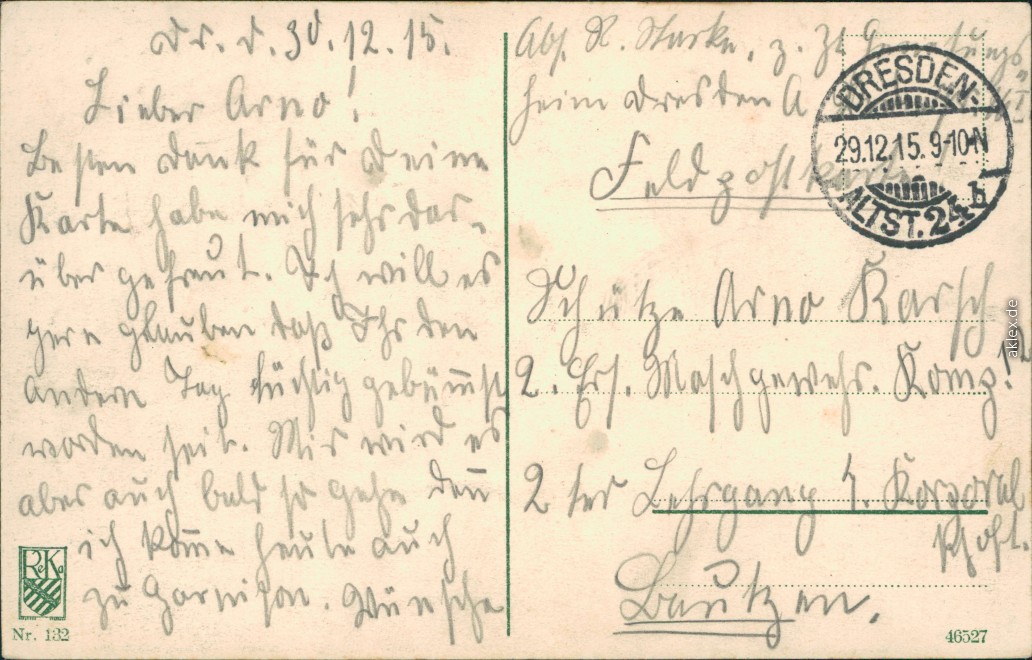 Dr. d. 30.12.15.
Lieber Arno!
Besten Dank für Deine
Karte habe mich sehr dar-
über gefreut. Ich will es
gern glauben daß Ihr den
andern Tag tüchtig gebümmst
worden seit. Mir wird es
aber auch bald so gehn denn
ich komme heute auch
zu Garnison. Wünsche
ReKa
Nr. 132
Abs. R. Starke, z. Zt. Genesungs
heim Dresden A
Feldpostkarte
DRESDEN-
29.12.15. 9-10 N
ALTST. 24 b
Schütze Arno Karsch
2. Ers. Maschgewehr. Komp!
2 ter Lehrgang 4. Korporal
schft.
Bautzen.
46527
aklex.de